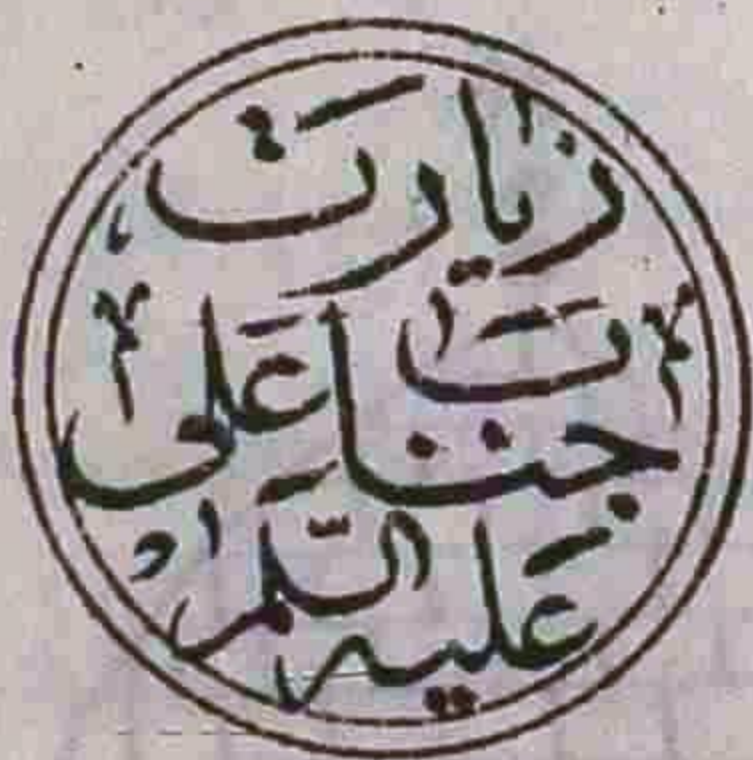 زیارت
جناب علی
علیہ السّلام